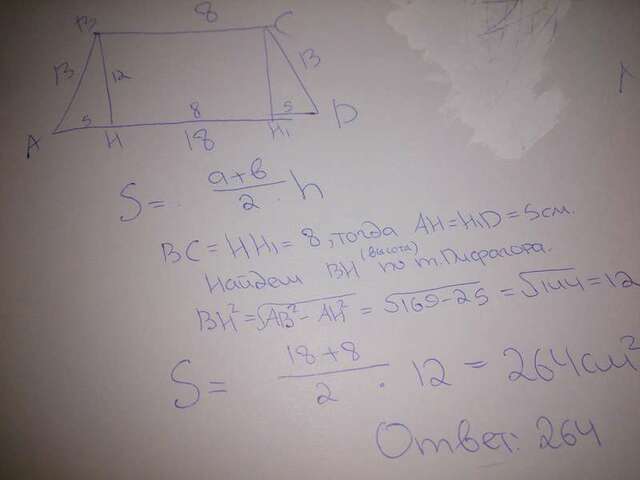 8
B C
13 12 13
A 5 H 8 H₁ 5 D
18
S = (a+b)/2 · h
BC = HH₁ = 8, тогда AH = H₁D = 5см.
Найдем BH (высота) по т. Пифагора.
BH² = √AB² - AH² = √169-25 = √144 = 12
S = (18+8)/2 · 12 = 264 см²
Ответ: 264